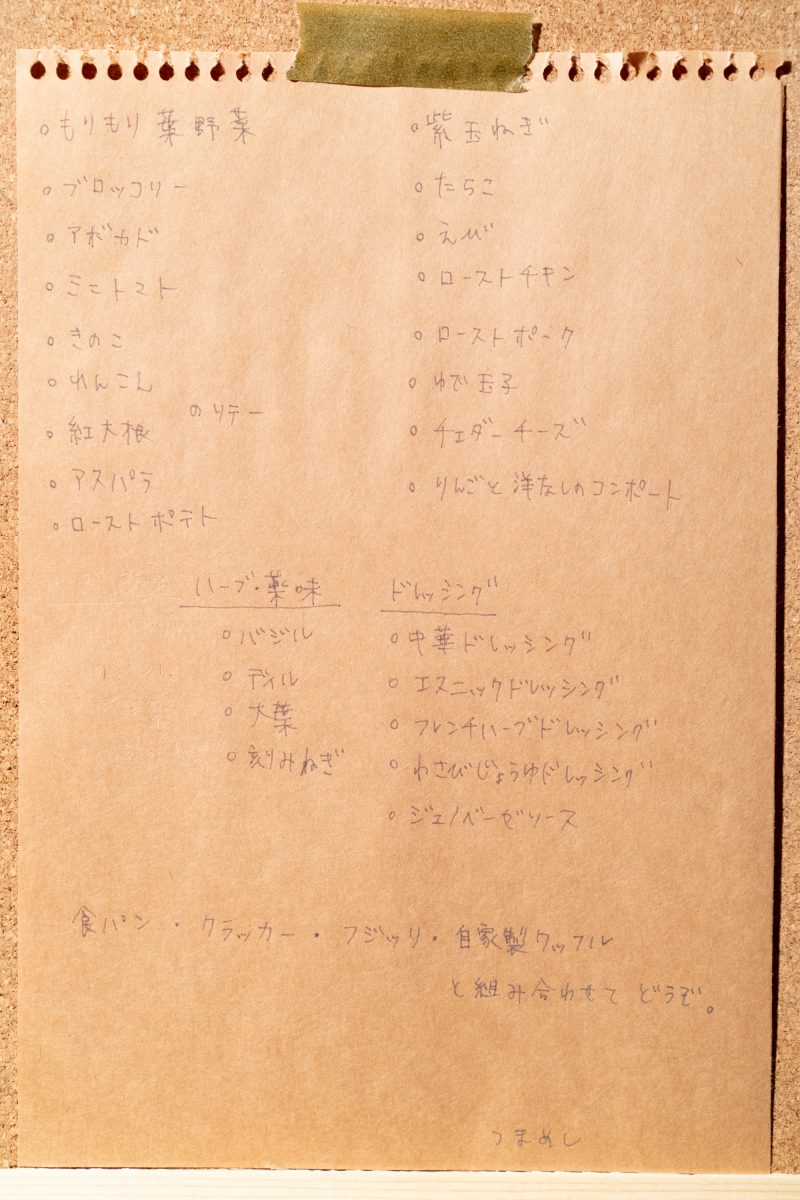 ○もりもり葉野菜
○ブロッコリー
○アボカド
○ミニトマト
○きのこ
○れんこん
のソテー
○紅大根
○アスパラ
○ローストポテト
○紫玉ねぎ
○たらこ
○えび
○ローストチキン
○ローストポーク
○ゆで玉子
○チェダーチーズ
○りんごと洋なしのコンポート
ハーブ・薬味
○バジル
○ディル
○大葉
○刻みねぎ
ドレッシング
○中華ドレッシング
○エスニックドレッシング
○フレンチハーブドレッシング
○わさびじょうゆドレッシング
○ジェノベーゼソース
食パン・クラッカー・フジッリ・自家製ワッフル
と組み合わせてどうぞ。
つまめし